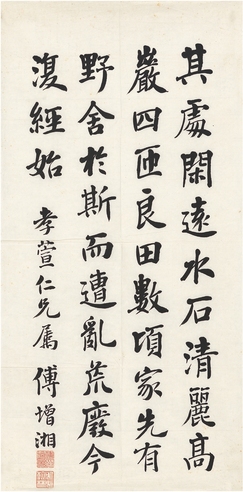 其處閑遠水石清麗高
巖四匝良田數頃家先有
野舍於斯而遭亂荒廢今
復經始
孝萱仁兄屬 傅增湘